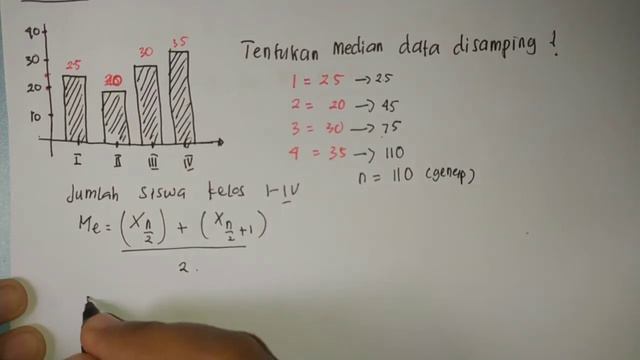 Tentukan Median data disamping !
40
30
20
10
25
20
30
35
I
II
III
IV
1 = 25 → 25
2 = 20 → 45
3 = 30 → 75
4 = 35 → 110
n = 110 (genap)
Jumlah siswa kelas I-IV
Me = (X n/2) + (X n/2 +1)
2.